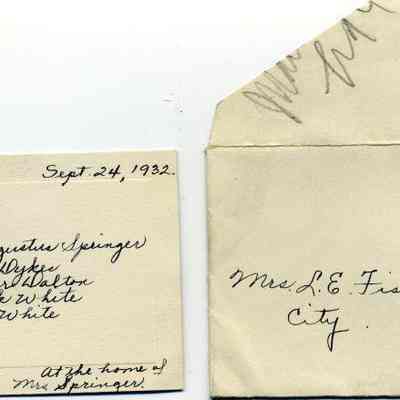 Sept. 24, 1932.
Springer
Dykes
Dalton
White
White
At the home of
Mrs. Springer.
Mrs. L. E. Fis
City.